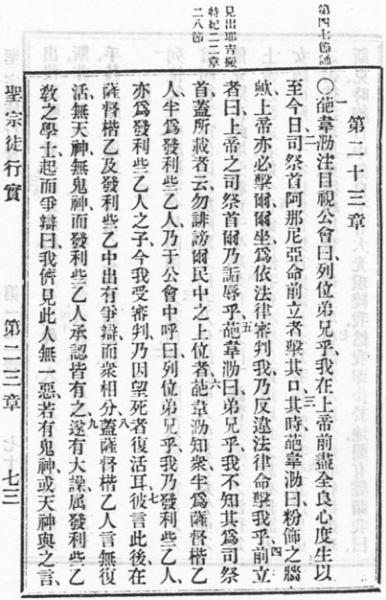 第四七節誦
見出耶吉撥
特紀二二章
二八節
第二十三章
〇葩韋泐注目視公會曰、列位弟兄乎、我在上帝前盡全良心度生以
至今日、司祭首阿那尼亞命前立者擊其口、其時葩韋泐曰、粉飾之牆
歟、上帝亦必擊爾、爾坐爲依法律審判我、乃反違法律命擊我乎、前立
者曰、上帝之司祭首爾乃詬辱乎、葩韋泐曰、弟兄乎、我不知其爲司祭
首、蓋所載者云、勿誹謗爾民中之上位者、葩韋泐知衆半爲薩督楷乙
人、半爲發利些乙人、乃于公會中呼曰、列位弟兄乎、我乃發利些乙人、
亦爲發利些乙人之子、今我受審判、乃因望死者復活耳、彼言此後、在
薩督楷乙及發利些乙中出有爭辯、而衆相分、蓋薩督楷乙人言無復
活、無天神、無鬼神、而發利些乙人承認皆有之、遂有大譟、属發利些乙
敎之學士起而爭辯曰、我儕見此人無一惡、若有鬼神或天神與之言、
聖宗徒行實 第二三章 七三